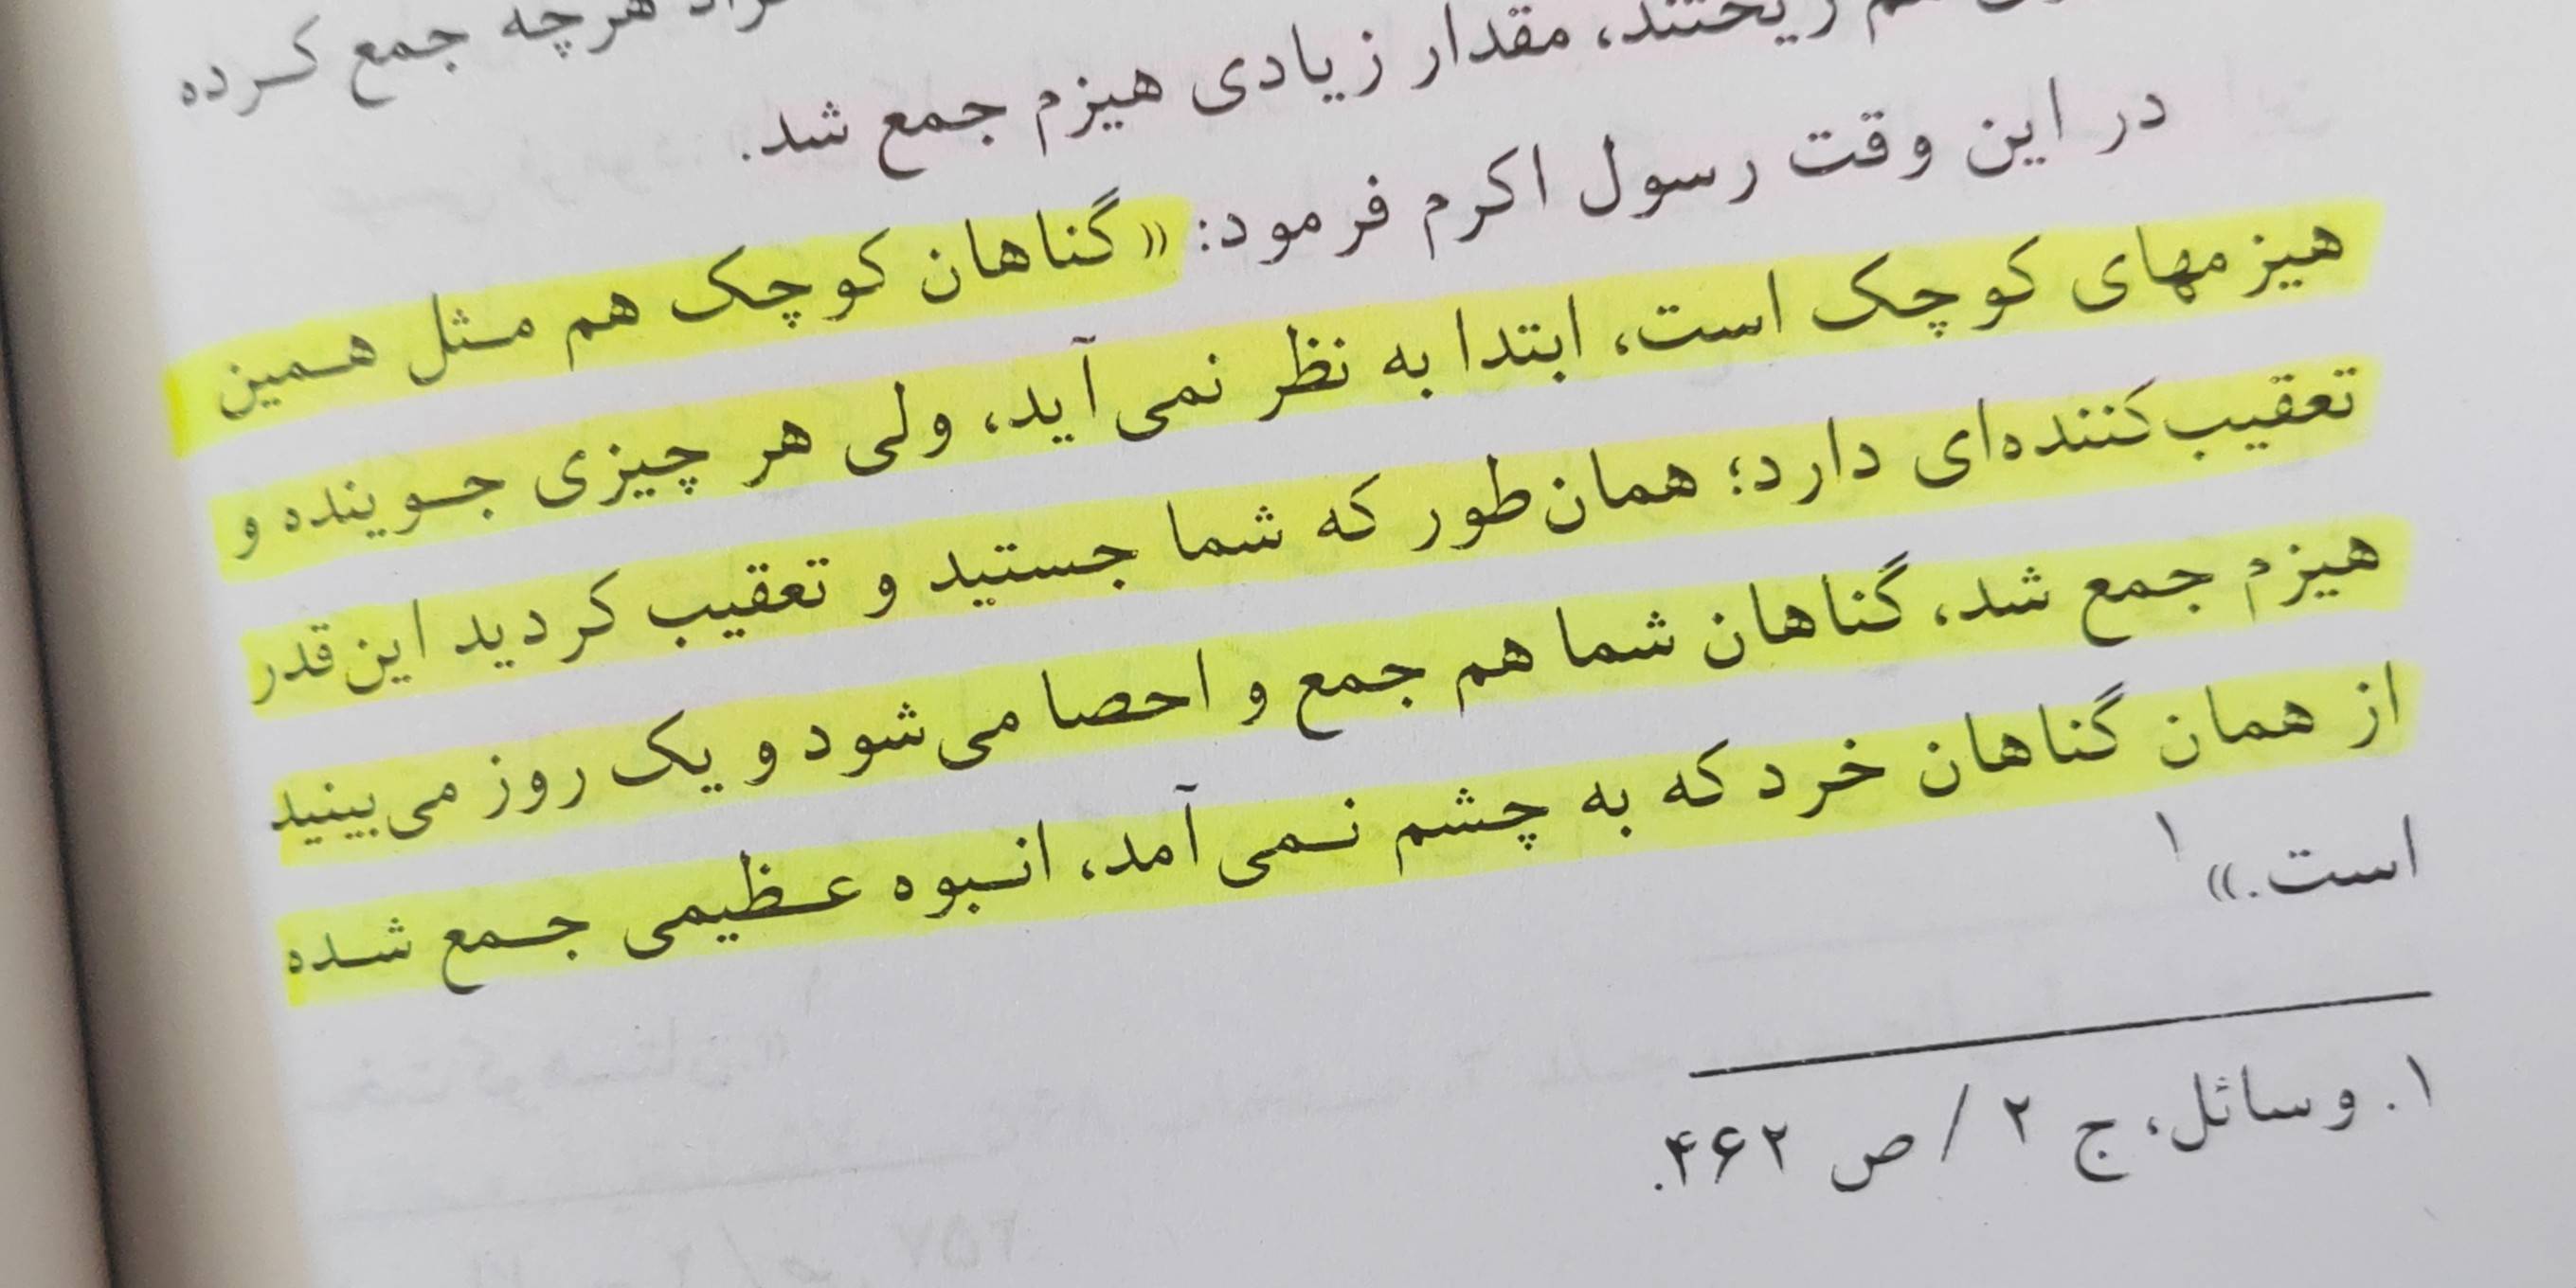 هرچه جمع کرده
ریختند، مقدار زیادی هیزم جمع شد.
در این وقت رسول اکرم فرمود: «گناهان کوچک هم مثل همین
هیزمهای کوچک است، ابتدا به نظر نمی‌آید، ولی هر چیزی جوینده و
تعقیب‌کننده‌ای دارد؛ همان‌طور که شما جستید و تعقیب کردید این‌قدر
هیزم جمع شد، گناهان شما هم جمع و احصا می‌شود و یک روز می‌بینید
از همان گناهان خرد که به چشم نمی‌آمد، انبوه عظیمی جمع شده
است.»۱
۱. وسائل، ج ۲ / ص ۴۶۲.